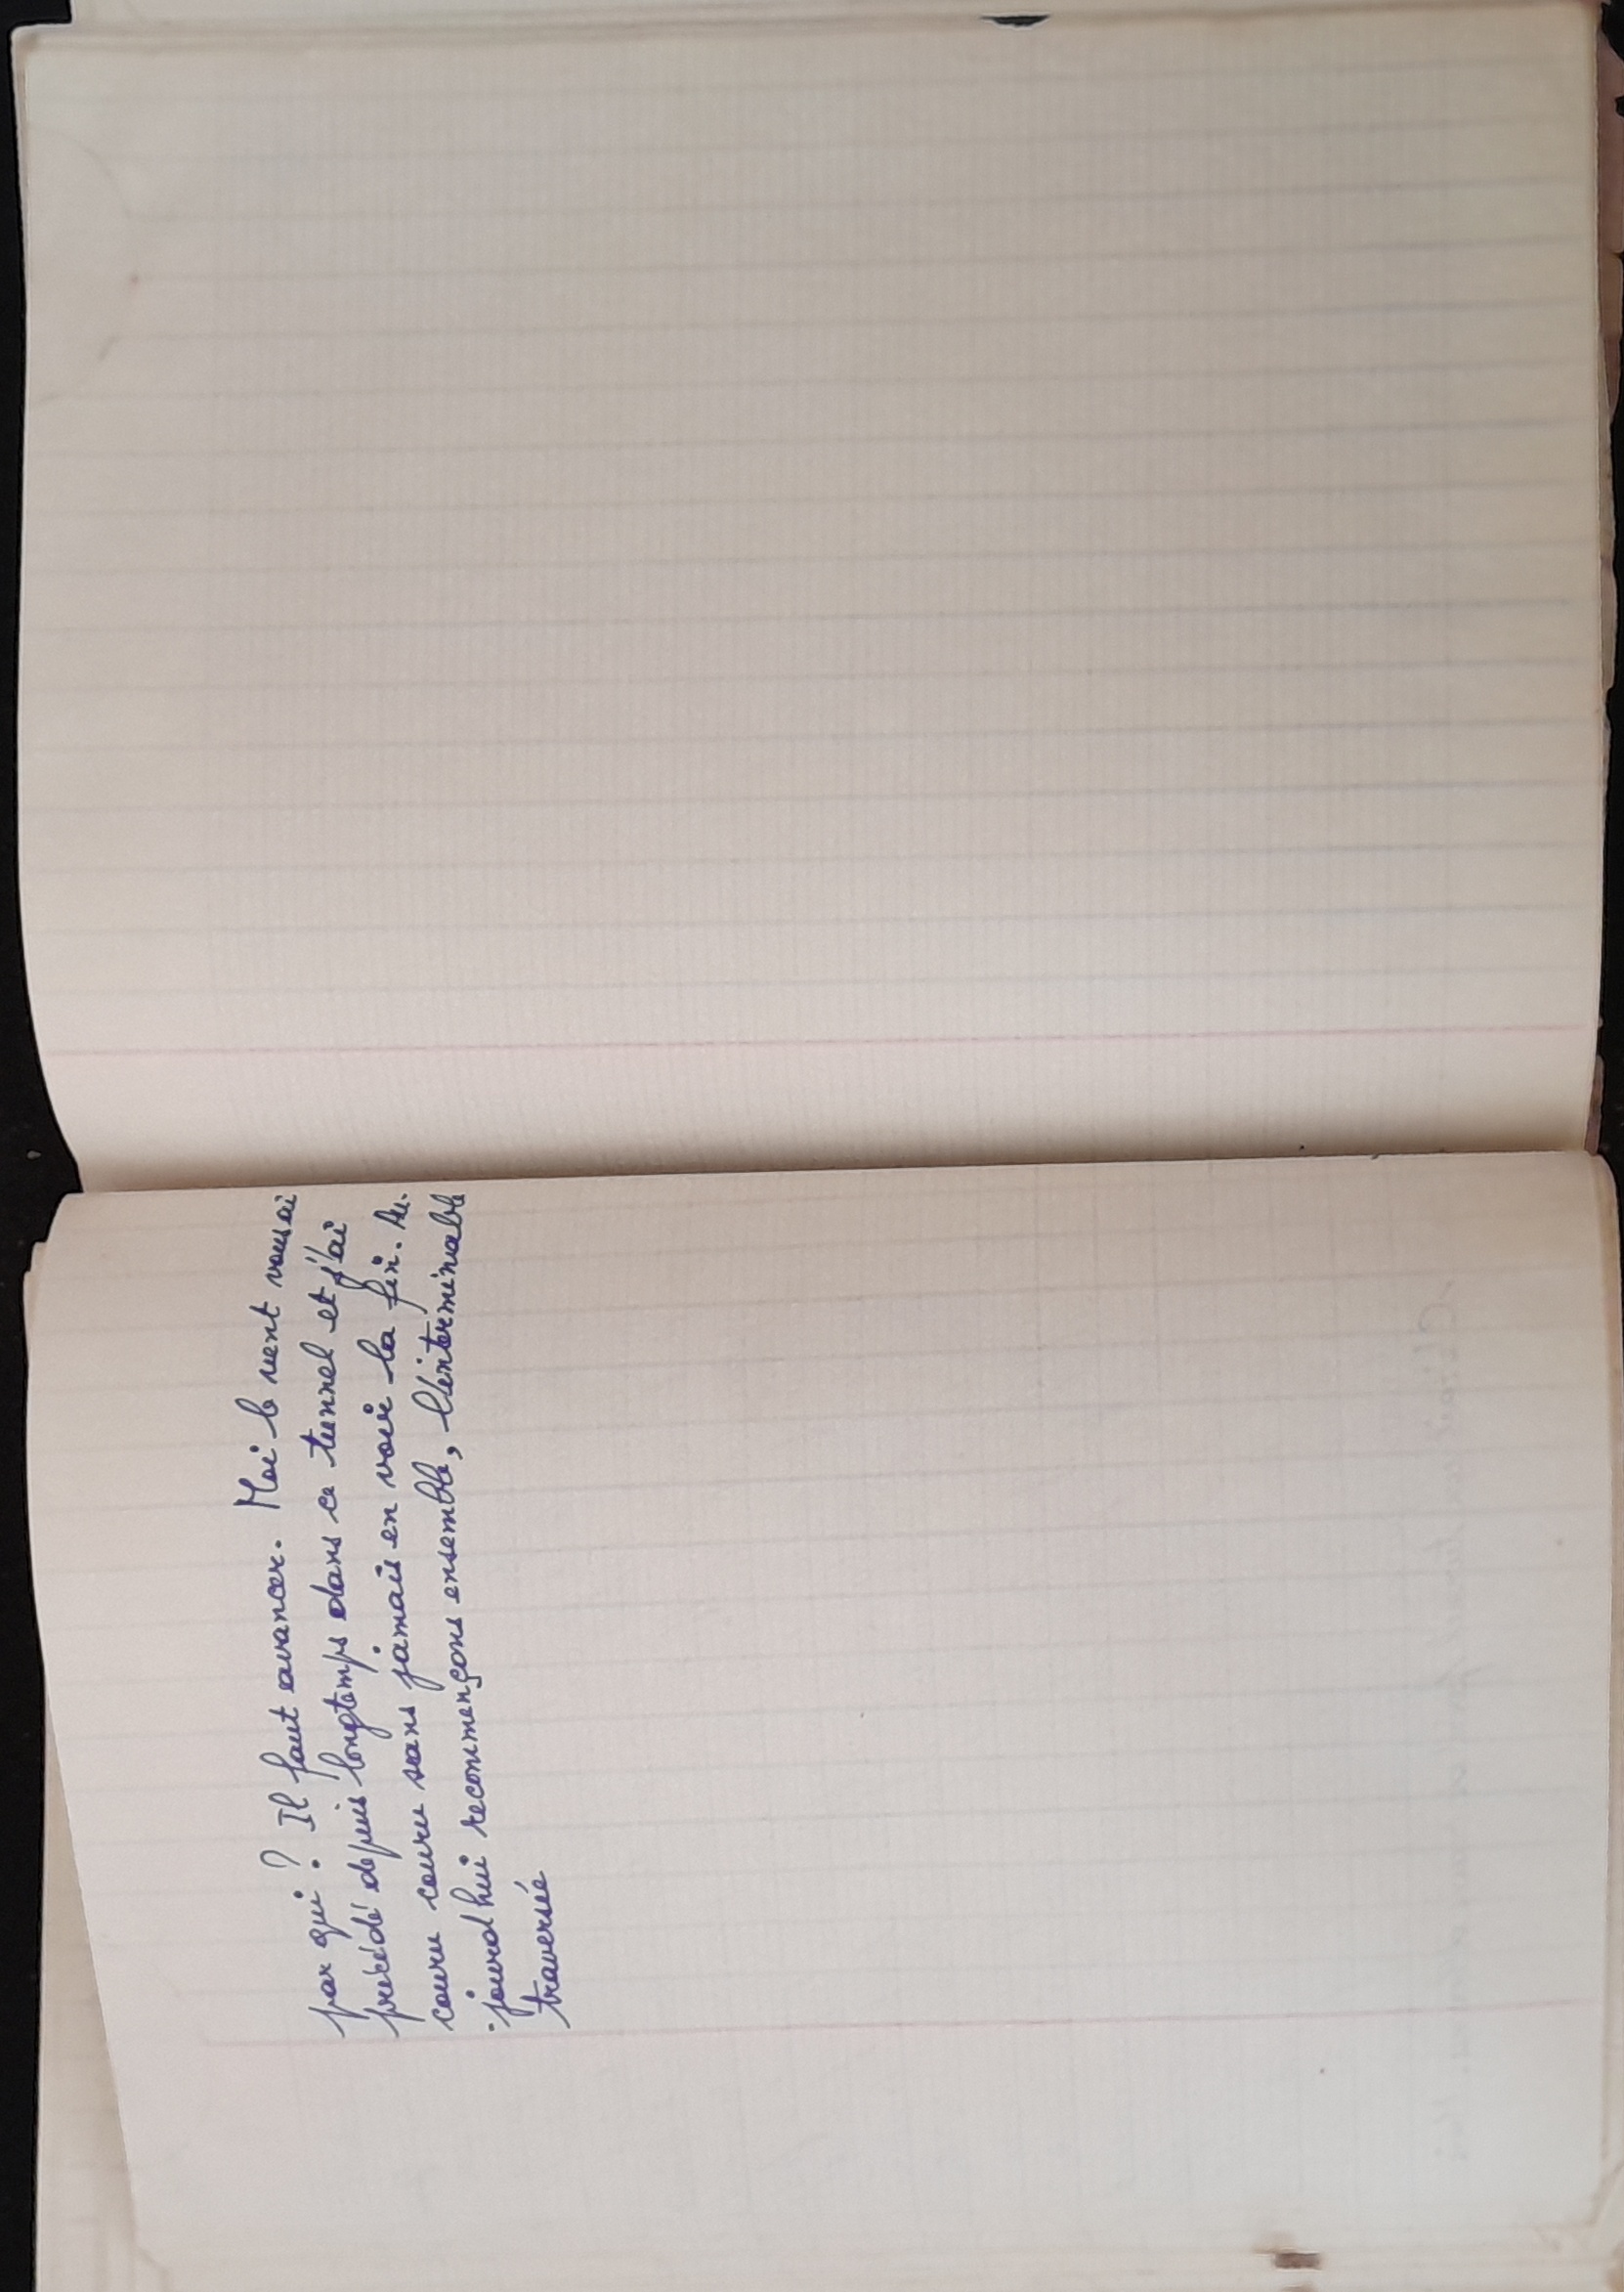 par qui ? Il faut avancer. Moi le vent vous ai
précédé depuis longtemps dans ce tunnel et j'ai
couru couru sans jamais en voir la fin. Au-
-jourd'hui recommençons ensemble, l'interminable
traversée